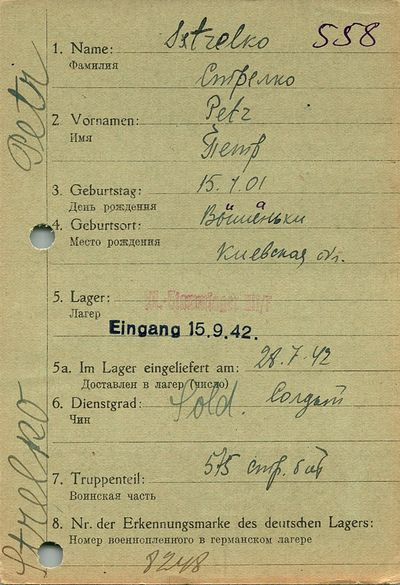 558
1. Name: Sstrelko
Фамилия Стрелко
2. Vornamen: Petr
Имя Петр
3. Geburtstag: 15.1.01
День рождения
4. Geburtsort:
Место рождения Киевская обл.
5. Lager:
Лагер
Eingang 15.9.42.
5a. Im Lager eingeliefert am: 28.7.42
Доставлен в лагер (число)
6. Dienstgrad: Sold. Солдат
Чин
7. Truppenteil: 575 стр. бат
Воинская часть
8. Nr. der Erkennungsmarke des deutschen Lagers:
Номер военнопленного в германском лагере
8248
Strelko Petr